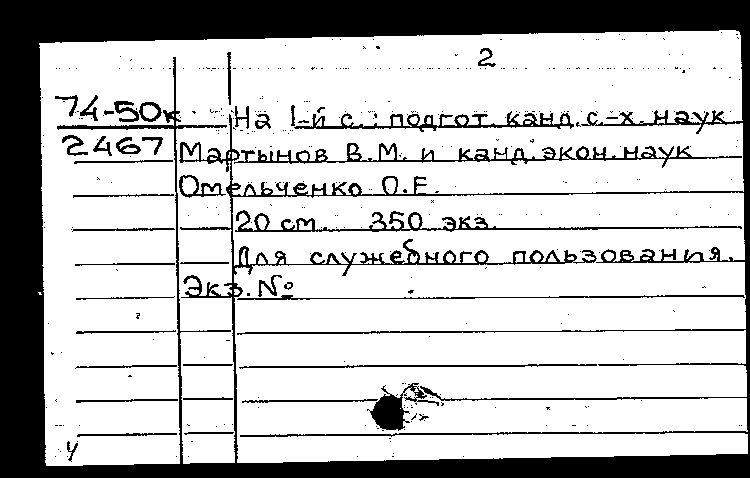 2
74-50к На 1-й с.: подгот. канд. с.-х. наук
2467 Мартынов В.М. и канд. экон. наук
Омельченко О.Е.
20 см. 350 экз.
Для служебного пользования.
Экз. №